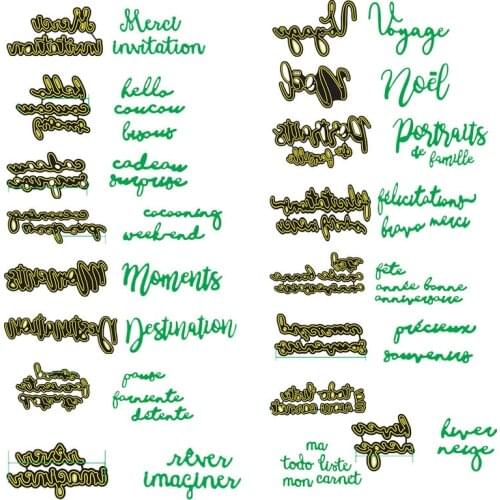 Merci
invitation
hello
coucou
bisous
cadeau
surprise
cocooning
week-end
Moments
Destination
pause
farniente
détente
rêver
imaginer
Voyage
Noël
Portraits
de famille
félicitations
bravo merci
fête
année bonne
anniversaire
précieux
souvenirs
ma
todo liste
mon carnet
hiver
neige